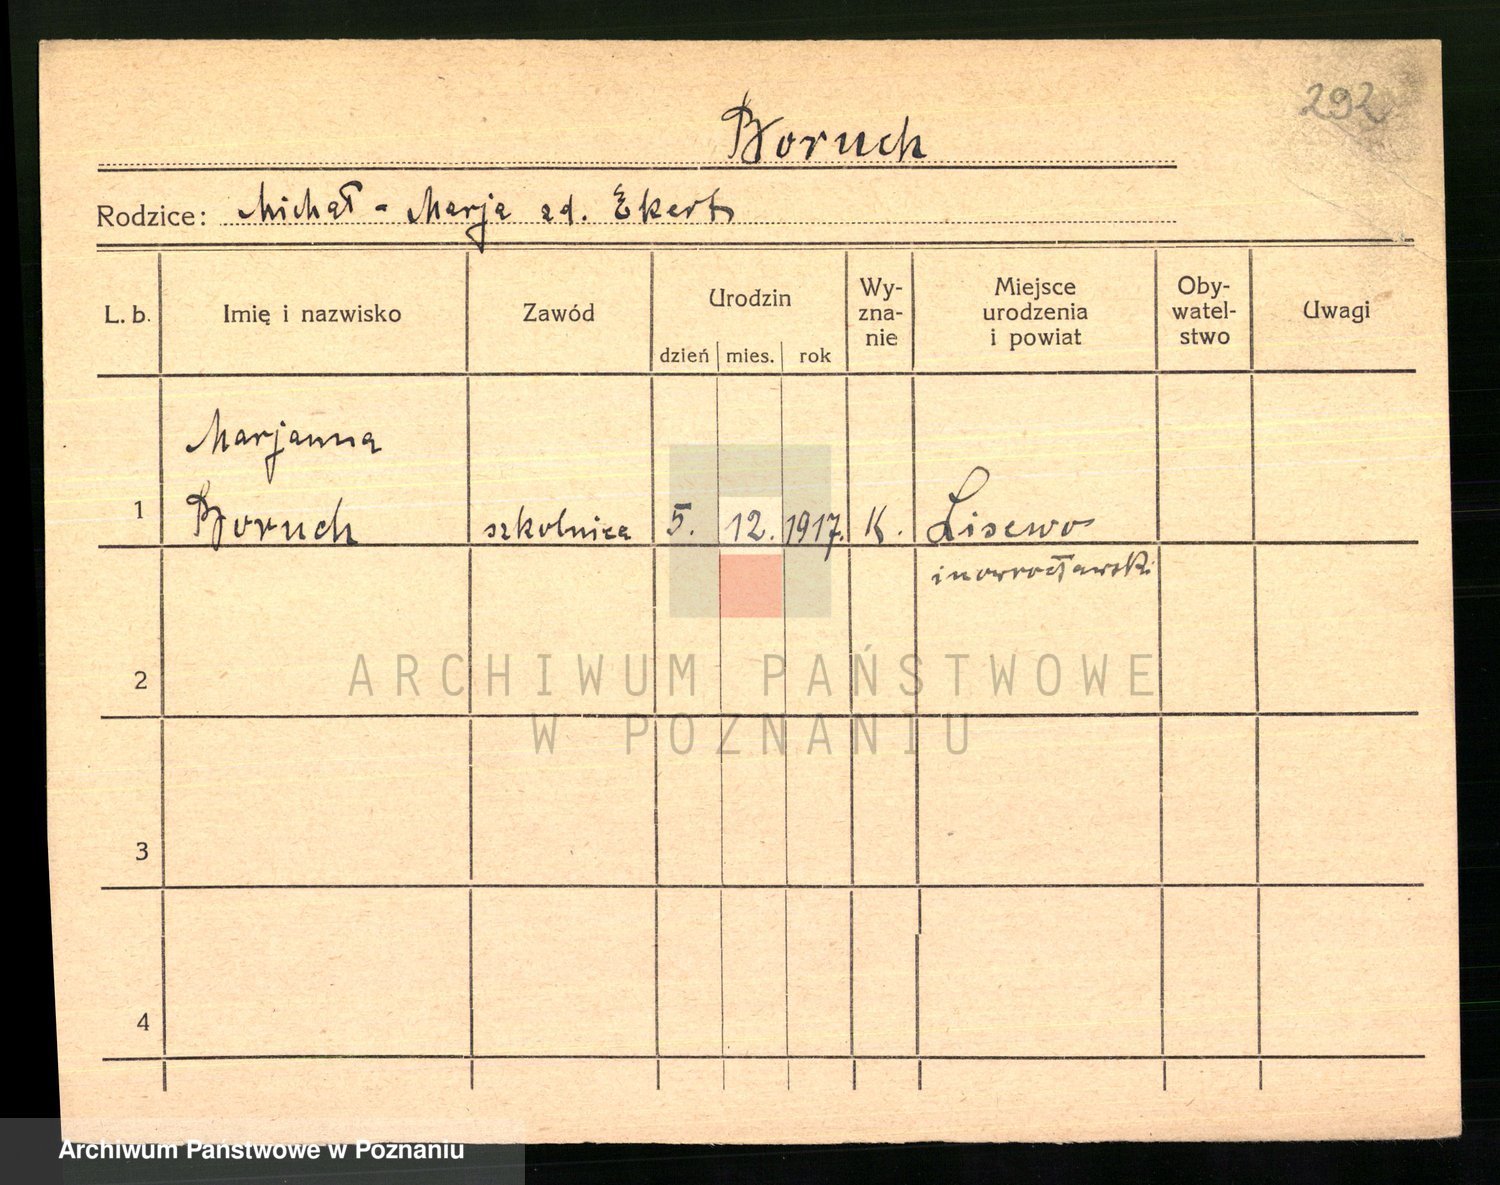 292
Boruch
Rodzice: Michał - Marja zd. Ekert
L. b. Imię i nazwisko Zawód Urodzin Wy-zna-nie Miejsce urodzenia i powiat Oby-watel-stwo Uwagi
dzień mies. rok
Marjanna
1 Boruch szkolnica 5. 12. 1917. K. Lisewo
inowrocławski
2
3
4
ARCHIWUM PAŃSTWOWE
W POZNANIU
Archiwum Państwowe w Poznaniu